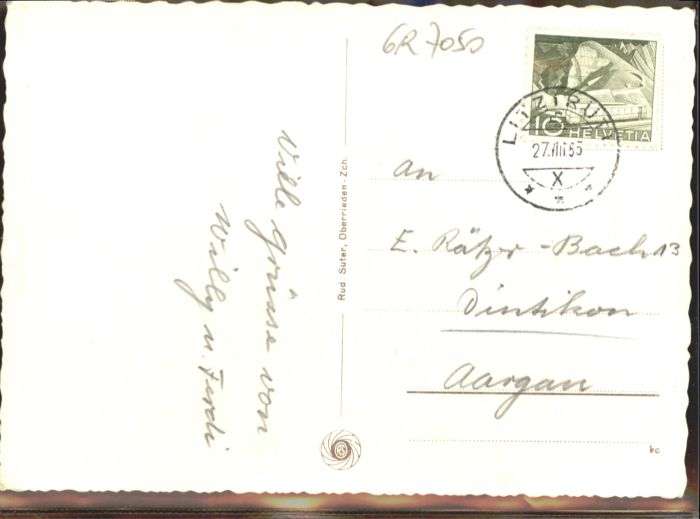 GR 7050
10 HELVETIA
LITZIRÜTI
27.VIII.55
X
An
E. Rätzer-Bach 13
Dintikon
Aargau
Viele Grüsse von
Willy u. Ferdi
Rud Suter, Oberrieden-Zch.
kc